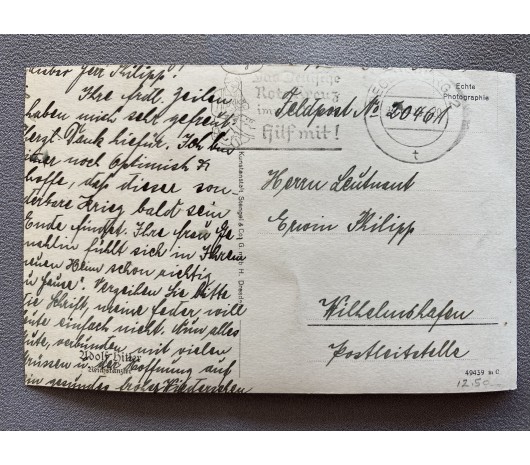 Lieber Herr Philipp!
Ihre frdl. Zeilen
haben mich sehr gefreut.
Herzl. Dank hiefür. Ich bin
immer noch Optimist &
hoffe, daß dieser son-
derbare Krieg bald sein
Ende findet. Ihre Frau Ge-
mahlin fühlt sich in Ihrem
neuen Heim schon richtig
zu Hause". Verzeihen Sie bitte
die Schrift, meine Feder will
heute einfach nicht. Nun alles
Gute, verbunden mit vielen
Grüssen u. der Hoffnung auf
ein gesundes frohes Wiedersehen
Adolf Hitler
Reichskanzler
Kunstanstalt Stengel & Co G. m. b. H. Dresden
Das Deutsche
Rote Kreuz
im
Hilf mit!
Echte
Photographie
Feldpost No 20461
t
Herrn Leutnant
Erwin Philipp
Wilhelmshafen
Postleitstelle
49439 m C
12.50